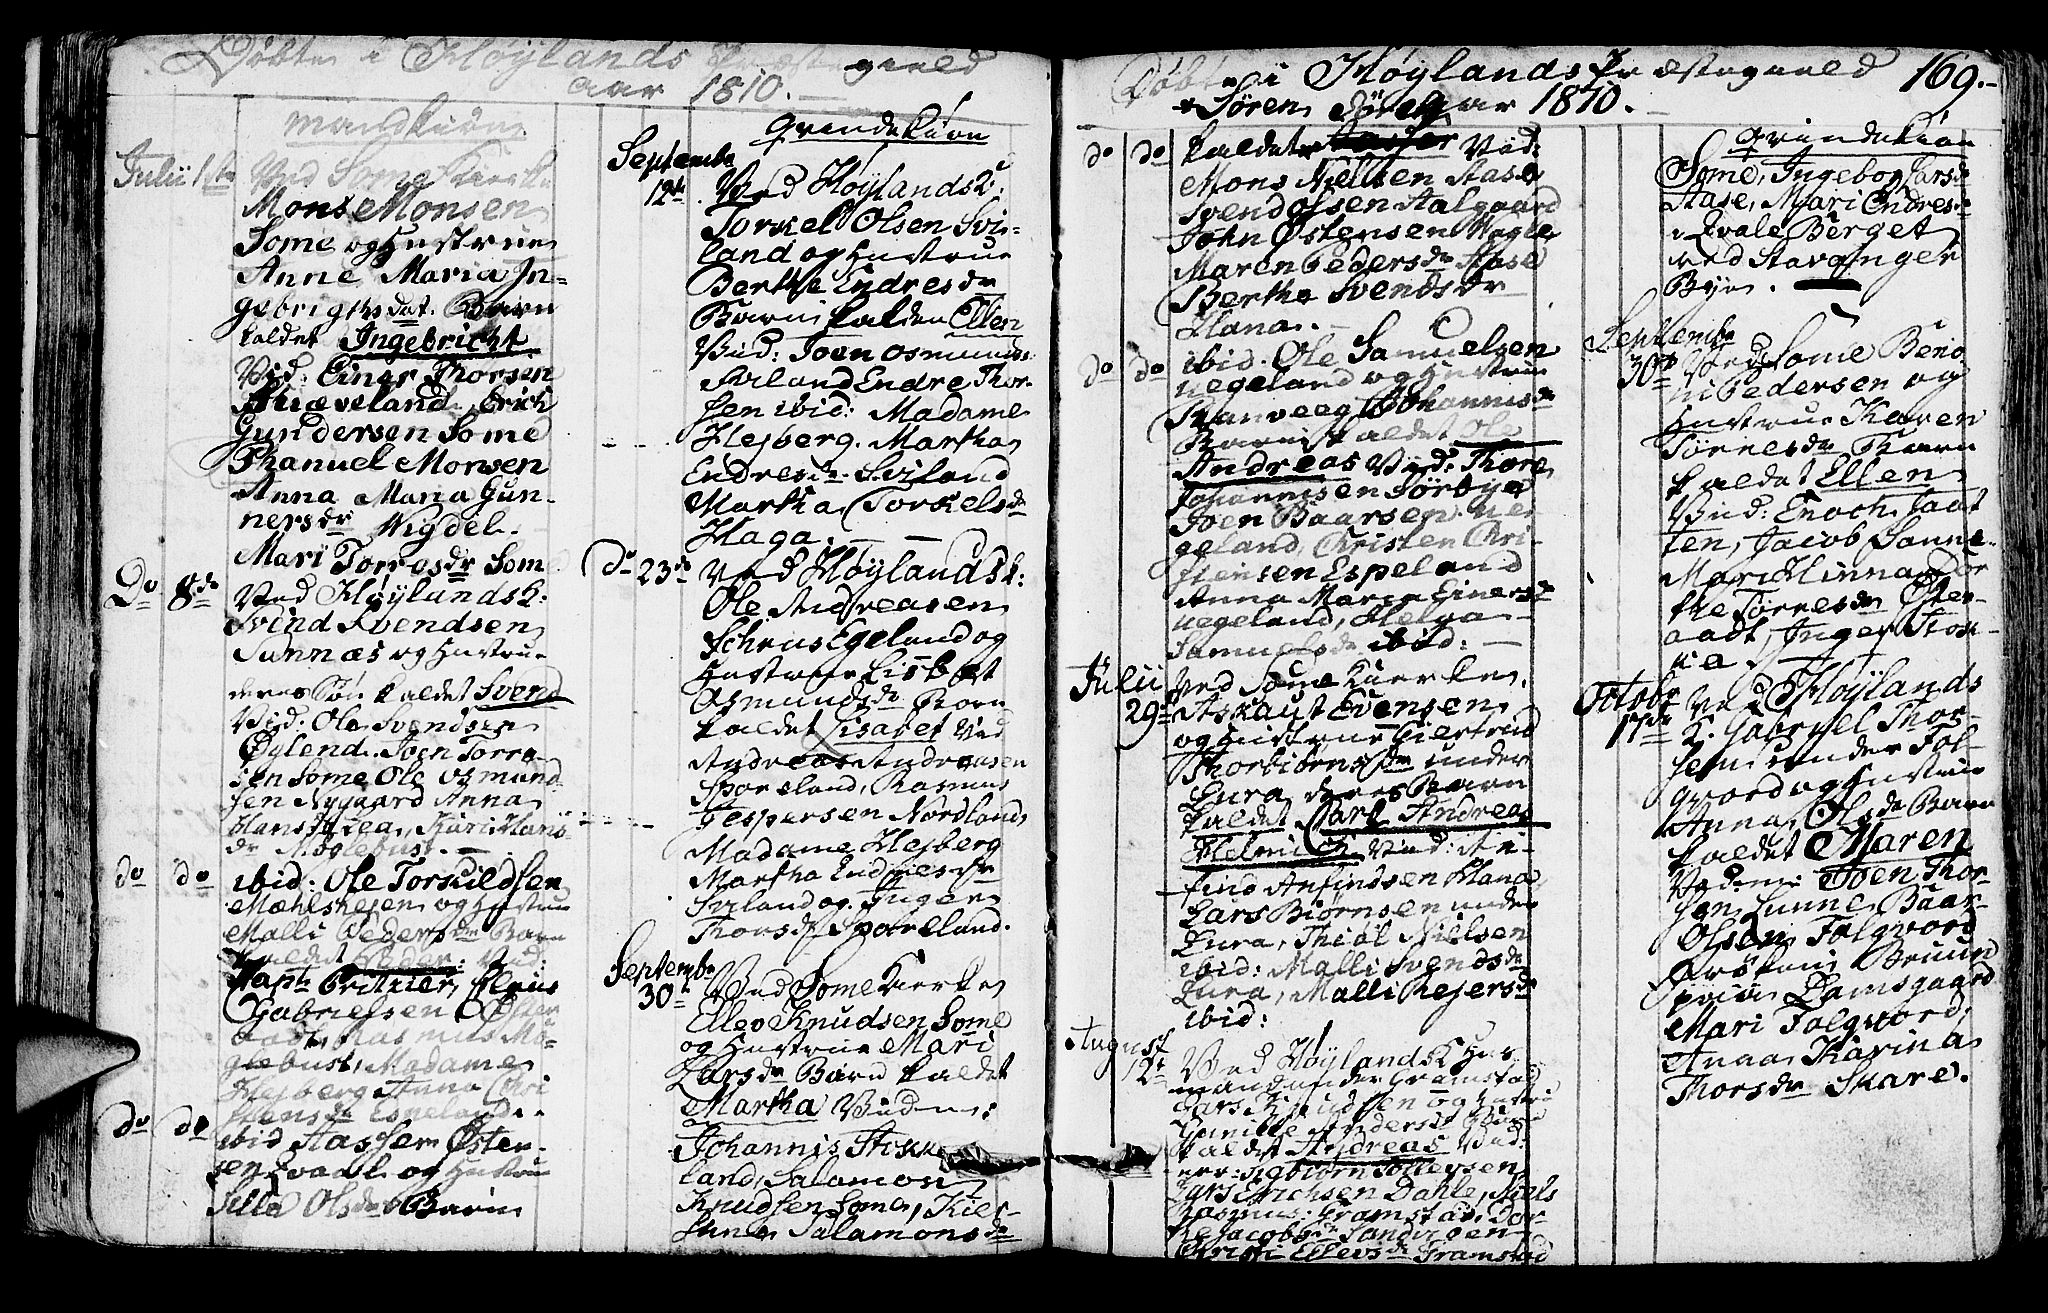 Døbte i Høylands Præstegield
aar 1810.
Mandkiøn
Julii 1ste
Ved Some Kierke
Mons Monsen
Some og Hustrue
Anne Maria In-
gebrigtsdat. Barn
kaldet Ingebricht
Vid: Einer Thorsen
Erich
Gundersen Some
Thanuel Monsen
Anna Maria Gun-
nersdr Vigdel.
Mari Torresdr Some
Do 8de
Ved Høylands K:
Svend Svendsen
Sunnæs og Hustrue
deres Søn kaldet Svend
Vid: Ole Svendsen
Øylend. Joen Torre-
sen Some Ole Osmund-
sen Nygaard Anna
Hans Kari Hans
dr Moglebust.
do do
ibid: Ole Torkildsen
Mæhlshejen og Hustrue
Malli Pedersdr Barn
kaldet Peder: Vid:
Capt: Critzier, Claus
Gabrielsen Øster
aadt, Rasmus Mo-
glebust, Madame
Hejberg Anna Chri
stensdr Espeland
do do
ibid Aasser Østen-
sen og Hustrue
Silla Olsdr Barn
Qvindekiøn
Septembr
12te
Ved Høylands K:
Torkel Olsen Svi-
land og Hustrue
Berthe Endresdr
Barn kaldet Ellen
Vid: Joen Osmunds
Sviland Endre Thor-
sen ibid: Madame
Hejberg. Martha
Endresdr Sviland
Martha Torkelsdr
Haga.
do 23de
Ved Høylands K:
Ole Andreasen
Schrus Egeland og
Hustrue Lisbet
Osmundsdr Barn
kaldet Lisabet Vid
Andreas Andreasen
Sporeland, Rasmus
Jespersen Nordland
Madame Hejberg
Martha Endresdr
Sviland og Inger
Thorsdr Sporeland.
Septembr
30te
Ved Some Kierke
Ellev Knudsen Some
og Hustrue Mari
Larsdr Barn kaldet
Martha Vidn:
Johannis Stokke
land, Salamon
Knudsen Some, Kier-
stine Salamonsdr
Døbte i Høylands Præstegield 169.
Søren aar 1810.
do do
kaldet Vid:
Mons Nielsen Stase
Svend Olsen Aalgaard
John Østensen Vagle
Maren Pedersdr Stase
Berthe Svendsdr
Hana.
do do
ibid. Ole Samuelsen
uegeland og Hustrue
Ranveeg Johannisdr
Barn kaldet Ole
Andreas Vid: Thore
Johannisen Sørbye
Joen Baarsen ue-
geland, Christen Chri-
stensen Espeland
Anna Maria Einersdr
uegeland, Helga
Samuelsdr ibid:
Julii
29de
Ved Some Kierke
Aslaut Evensen
og Hustrue Giertrud
Thorbiørnsdr under
Lura deres Barn
kaldet Carl Andreas
Helmich Vid: An-
find Anfindsen Hana
Lars Biørnsen under
Lura, Thiøl Nielsen
ibid: Malli Svendsdr
Lura, Malli Rejersdr
ibid:
August
12te
Ved Høylands K Huus
mand under Gramstad
Lars Knudsen og Hustru
Gunille Andersdr Barn
kaldet Andreas Vid:
ner: Tollevsen
Lars Erichsen Dahle, Niels
Rasmus: Gramstad, Dor-
the Jacobsdr Sandven
Christi Ellevsdr Gramstad
Qvindekiøn
Some, Ingebor Larsdr
Stase, Mari Endresdr
Berget
ved Stavanger
Bye.
Septembr
30te
Ved Some Beno
ni Pedersen og
Hustrue Karen
Tørresdr Barn
kaldet Ellen
Vid: Enoch Jaat
ten, Jacob Sonne
Mari Hinna Dor
the Tørresdr Øster
aadt, Inger Stok-
ka.
Octobr
17de
Ved Høylands
K. Gabriel Thor-
sen under Fol-
qvord og Hustrue
Anna Olsdr Barn
kaldet Maren
Vidn: Joen Thor-
sen Lunne Baar-
Olsen Folqvord
Frøken Bruun
paa Damsgaard
Mari Folqvord,
Anna Karina
Thorsdr Skare.